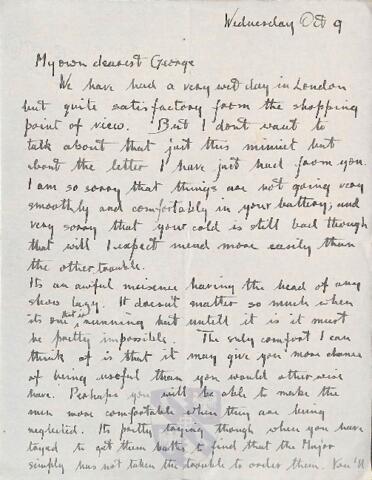 Wednesday Oct 9
My own dearest George
We have had a very wet day in London
but quite satisfactory from the shopping
point of view. But I dont want to
talk about that just this minuet but
about the letter I have just had from you.
I am so sorry that things are not going very
smoothly and comfortably in your battery; and
very sorry that your cold is still bad though
that will I expect mend more easily than
the other trouble.
Its an awful nuisence having the head of any
show lazy. It doesn't matter so much when
its one that is running but untill it is it must
be pretty impossible. The only comfort I can
think of is that it may give you more chance
of being useful than you would other wise
have. Perhaps you will be able to make the
men more comfortable when they are being
neglected. Its pretty trying though when you have
to get them baths to find that the Major
simply has not taken the trouble to order them. You'll